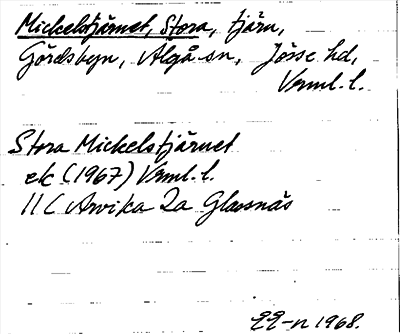 Mickelstjärnet, Stora, tjärn,
Gårdsbyn, Älgå sn, Jösse hd,
Verml. l.
Stora Mickelstjärnet
ek (1967) Vrml. l.
11 C Arvika 2a Glassnäs
1968.